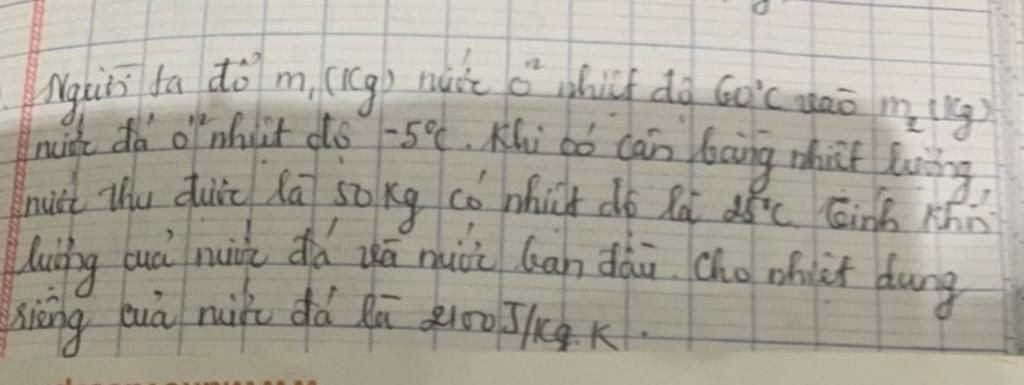 Người ta đổ m₁(Kg) nước ở nhiệt độ 60°C vào m₂(Kg)
nước đá ở nhiệt độ -5°C. Khi có cân bằng nhiệt lượng,
nước thu được là 50 Kg có nhiệt độ là 25°C. Tính khối
lượng của nước đá và nước ban đầu. Cho nhiệt dung
riêng của nước đá là 2100J/Kg.K.